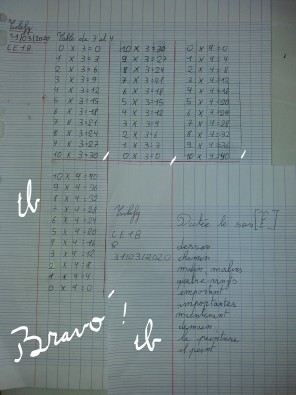 31/03/2020 Table de 3 et 4
CE1B
0 x 3 = 0
1 x 3 = 3
2 x 3 = 6
3 x 3 = 9
4 x 3 = 12
5 x 3 = 15
6 x 3 = 18
7 x 3 = 21
8 x 3 = 24
9 x 3 = 27
10 x 3 = 30
10 x 3 = 30
9 x 3 = 27
8 x 3 = 24
7 x 3 = 21
6 x 3 = 18
5 x 3 = 15
4 x 3 = 12
2 x 3 = 6
1 x 3 = 3
0 x 3 = 0
0 x 4 = 0
1 x 4 = 4
2 x 4 = 8
3 x 4 = 12
4 x 4 = 16
5 x 4 = 20
6 x 4 = 24
7 x 4 = 28
8 x 4 = 32
9 x 4 = 36
10 x 4 = 40
10 x 4 = 40
9 x 4 = 36
8 x 4 = 32
7 x 4 = 28
6 x 4 = 24
5 x 4 = 20
4 x 4 = 16
3 x 4 = 12
2 x 4 = 8
1 x 4 = 4
0 x 4 = 0
tb
Bravo !
Dictée le son
CE1B
31/03/2020
dessin
chemin
malin, malins
quatre-vingts
important
importantes
maintenant
demain
la peinture
il peint
tb